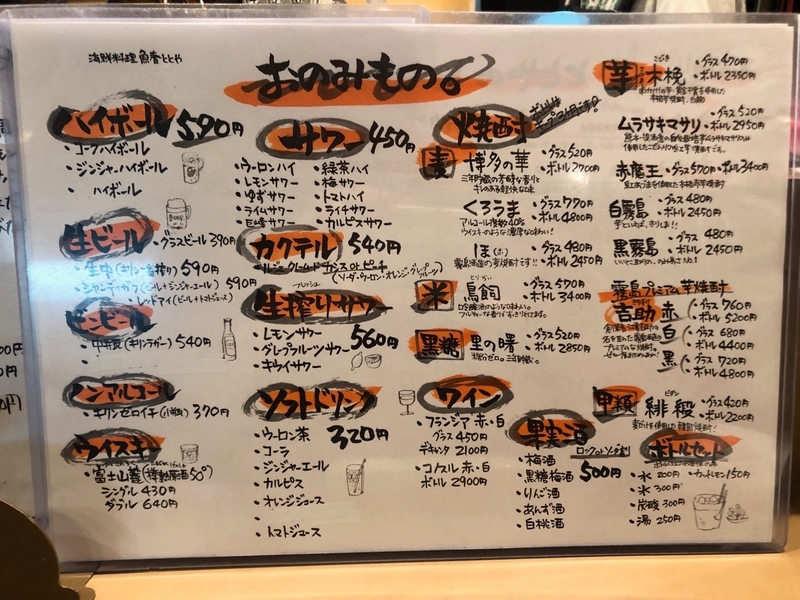 海鮮料理 魚香ととや
おのみもの。
ハイボール 590円
・コークハイボール
・ジンジャーハイボール
ハイボール
生ビール
・グラスビール 390円
・生中(キリン一番搾り) 590円
・シャンディガフ(ビール+ジンジャーエール) 590円
・レッドアイ(ビール+トマトジュース)
ビンビール
・中瓶(キリンラガー) 540円
ノンアルコール
・キリンゼロイチ(小瓶) 370円
ウイスキー
・富士山麓(樽熟原酒50°)
シングル 430円
ダブル 640円
サワー 450円
・ウーロンハイ
・レモンサワー
・ゆずサワー
・ライムサワー
・巨峰サワー
・緑茶ハイ
・梅サワー
・トマトハイ
・ライチサワー
・カルピスサワー
カクテル 540円
カシス or ピーチ
(ソーダ・ウーロン・オレンジ・グレープフルーツ)
フレッシュ
生搾りサワー
・レモンサワー 560円
・グレープフルーツサワー
・キウイサワー
ソフトドリンク
・ウーロン茶 320円
・コーラ
・ジンジャーエール
・カルピス
・オレンジジュース
・トマトジュース
焼酎
ボトルはキープ3ヶ月です!
麦
博多の華
・グラス 520円
・ボトル 2700円
三年貯蔵の芳醇な香りと
キレのある軽快な味
くろうま
・グラス 770円
・ボトル 4800円
アルコール度数40%
ウイスキーのような濃厚な味わい!
ほ(ホ)
・グラス 480円
・ボトル 2450円
霧島酒造の麦焼酎です!!
米
とりかい
鳥飼
・グラス 570円
・ボトル 3400円
吟醸酒のような味わい。
フルーティな香りですっきりしてます。
黒糖
里の曙
・グラス 520円
・ボトル 2850円
糖分ゼロ。三年貯蔵。
ワイン
・フランジア 赤・白
グラス 450円
デキャンタ 2100円
・コノスル 赤・白
ボトル 2900円
果実酒
ロック or ソーダ割り
・梅酒 500円
・黒糖梅酒
・りんご酒
・あんず酒
・白桃酒
芋
こびき
木挽
・グラス 470円
・ボトル 2350円
ムラサキマサリ
・グラス 520円
・ボトル 2950円
赤魔王
・グラス 570円・ボトル 3400円
白霧島
・グラス 480円
・ボトル 2450円
芋といえば、きりしま!!
黒霧島
・グラス 480円
・ボトル 2450円
霧島プレミアム芋焼酎
吉助
赤
・グラス 760円
・ボトル 5200円
白
・グラス 680円
・ボトル 4400円
黒
・グラス 720円
・ボトル 4800円
甲類
ピダン
緋緞
・グラス 420円
・ボトル 2200円
ボトルセット
・水 200円
・カットレモン 150円
・氷 300円
・炭酸 300円
・湯 250円